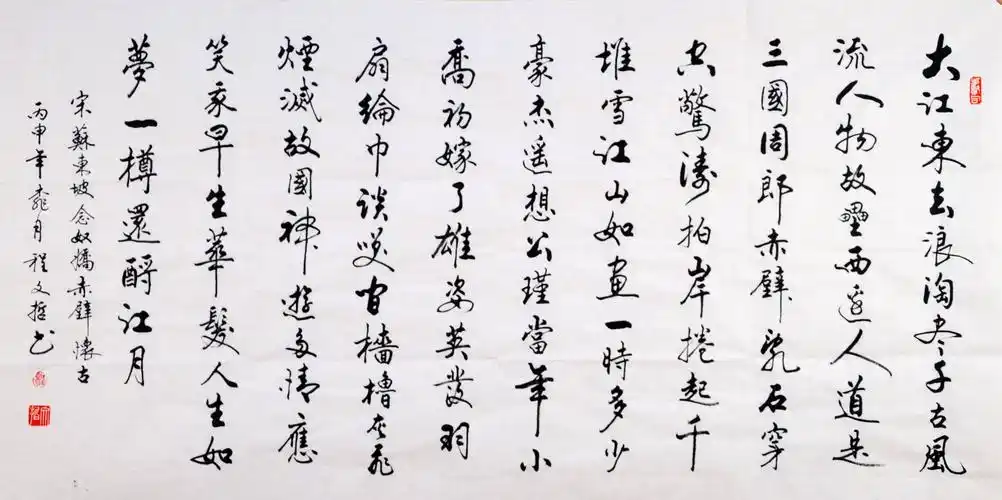 大江東去浪淘盡千古風
流人物故壘西邊人道是
三國周郎赤壁亂石穿
空驚濤拍岸捲起千
堆雪江山如畫一時多少
豪杰遥想公瑾當年小
喬初嫁了雄姿英發羽
扇綸巾談笑間檣櫓灰飛
煙滅故國神遊多情應
笑我早生華髮人生如
夢一樽還酹江月
宋蘇東坡念奴嬌赤壁懷古
丙申年 月程文 書